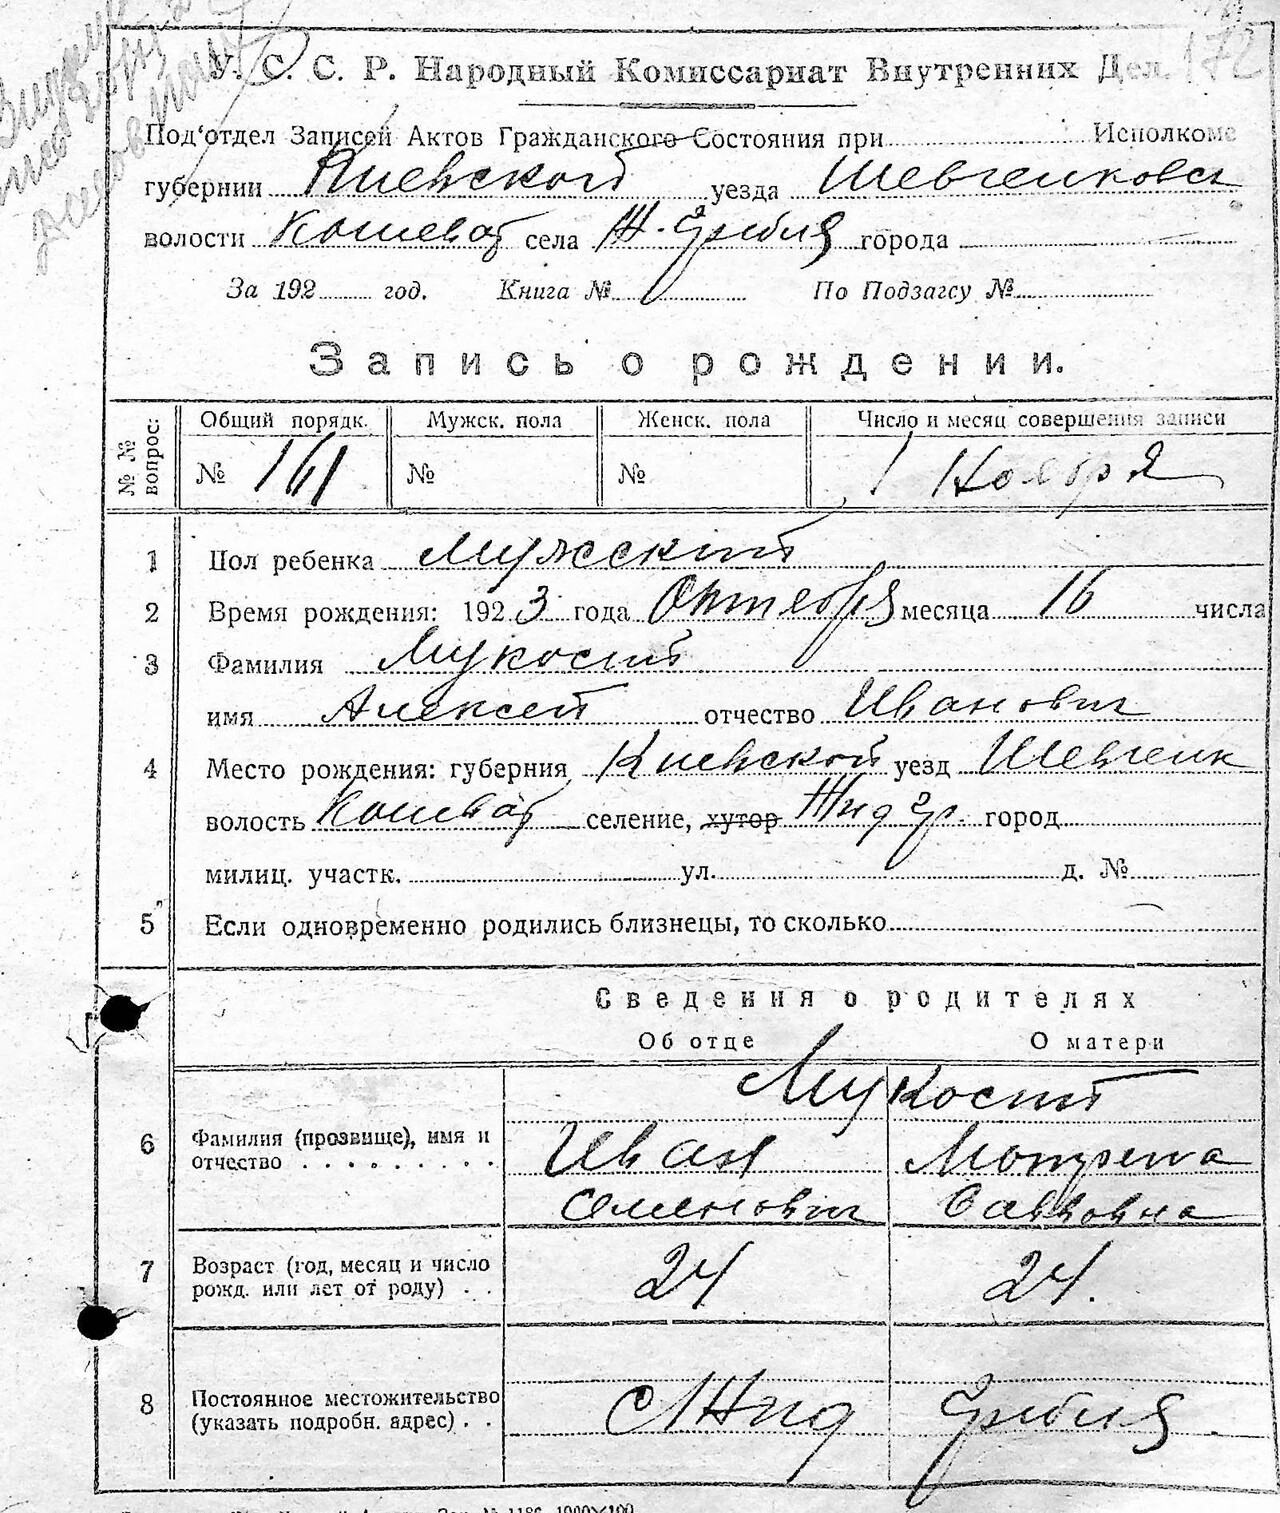 172
У. С. С. Р. Народный Комиссариат Внутренних Дел.
Под'отдел Записей Актов Гражданского Состояния при Исполкоме
губернии Киевской уезда Шевченковск
волости Кошеват села Ж. Гребля города
За 192 год. Книга № По Подзагсу №
Запись о рождении.
№ № вопрос: Общий порядк. Мужск. пола Женск. пола Число и месяц совершения записи
№ 161 № № 1 Ноября
1 Пол ребенка Мужеский
2 Время рождения: 1923 года Октября месяца 16 числа
3 Фамилия Мукосий
имя Алексей отчество Иванович
4 Место рождения: губерния Киевской уезд Шевченк
волость Кошеват селение, хутор Жид Гр. город
милиц. участк. ул. д. №
5 Если одновременно родились близнецы, то сколько
Сведения о родителях
Об отце О матери
Мукосий
6 Фамилия (прозвище), имя и Иван Мотрена
отчество . . . . . . . . . Семенович Савовна
7 Возраст (год, месяц и число 24 24.
рожд. или лет от роду) . .
8 Постоянное местожительство с Жид Гребля
(указать подробн. адрес) . .
№ 1186 1000×100